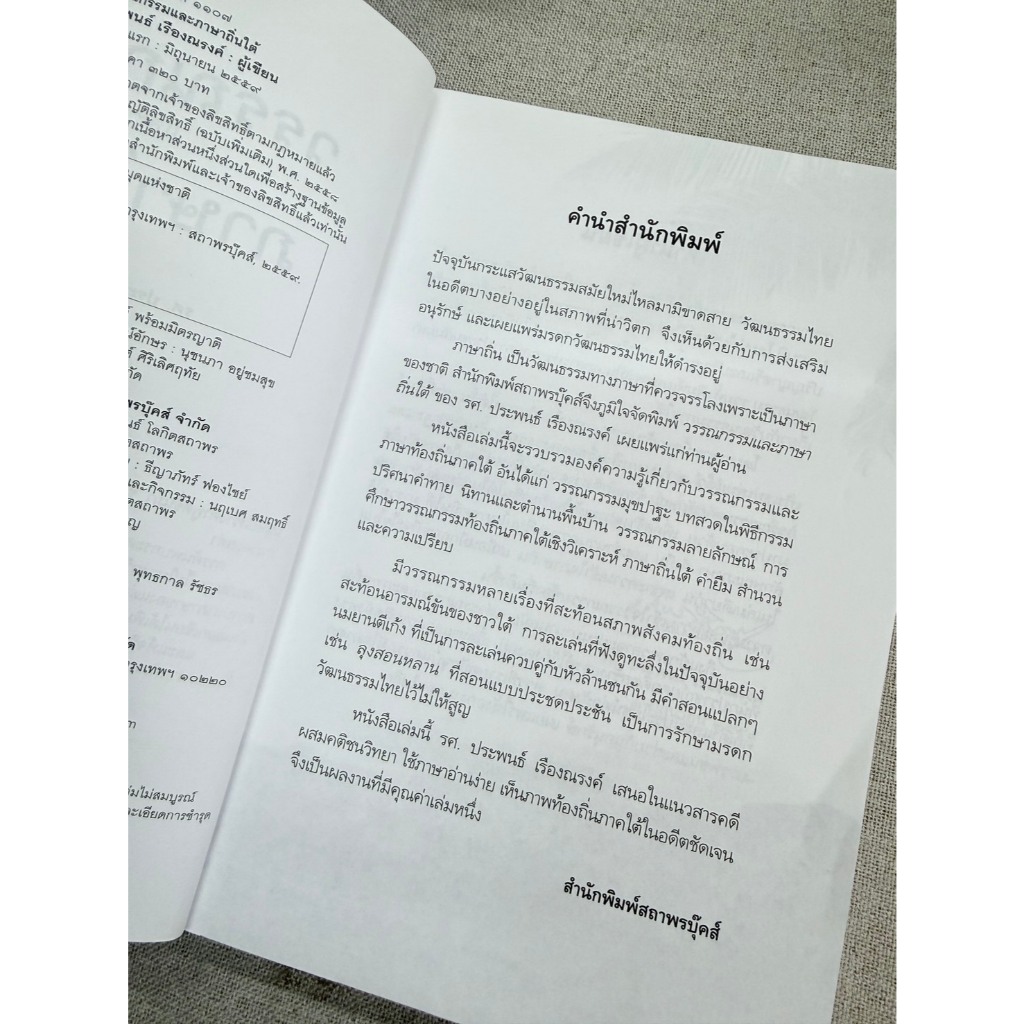 ๑๑๐๗
กรรมและภาษาถิ่นใต้
พนธ์ เรืองณรงค์ : ผู้เขียน
แรก : มิถุนายน ๒๕๕๙
คา ๓๒๐ บาท
จากเจ้าของลิขสิทธิ์ตามกฎหมายแล้ว
ญัติลิขสิทธิ์ (ฉบับเพิ่มเติม) พ.ศ. ๒๕๕๘
กเนื้อหาส่วนหนึ่งส่วนใดเพื่อสร้างฐานข้อมูล
สำนักพิมพ์และเจ้าของลิขสิทธิ์แล้วเท่านั้น
มุดแห่งชาติ
รุงเทพฯ : สถาพรบุ๊คส์, ๒๕๕๙.
พร้อมมิตรญาติ
อักษร : นุชนภา อยู่ชมสุข
ศิริเลิศฤทัย
กัด
พรบุ๊คส์ จำกัด
โลกิตสถาพร
ตสถาพร
: ธีญาภัทร์ ฟองไชย์
และกิจกรรม : นฤเบศ สมฤทธิ์
ตสถาพร
ญ
พุทธกาล รัชธร
ัด
รุงเทพฯ ๑๐๒๒๐
๓
ล่มไม่สมบูรณ์
ละเอียดการชำรุด
คำนำสำนักพิมพ์
ปัจจุบันกระแสวัฒนธรรมสมัยใหม่ไหลมามิขาดสาย วัฒนธรรมไทย
ในอดีตบางอย่างอยู่ในสภาพที่น่าวิตก จึงเห็นด้วยกับการส่งเสริม
อนุรักษ์ และเผยแพร่มรดกวัฒนธรรมไทยให้ดำรงอยู่
ภาษาถิ่น เป็นวัฒนธรรมทางภาษาที่ควรจรรโลงเพราะเป็นภาษา
ของชาติ สำนักพิมพ์สถาพรบุ๊คส์จึงภูมิใจจัดพิมพ์ วรรณกรรมและภาษา
ถิ่นใต้ ของ รศ. ประพนธ์ เรืองณรงค์ เผยแพร่แก่ท่านผู้อ่าน
หนังสือเล่มนี้จะรวบรวมองค์ความรู้เกี่ยวกับวรรณกรรมและ
ภาษาท้องถิ่นภาคใต้ อันได้แก่ วรรณกรรมมุขปาฐะ บทสวดในพิธีกรรม
ปริศนาคำทาย นิทานและตำนานพื้นบ้าน วรรณกรรมลายลักษณ์ การ
ศึกษาวรรณกรรมท้องถิ่นภาคใต้เชิงวิเคราะห์ ภาษาถิ่นใต้ คำยืม สำนวน
และความเปรียบ
มีวรรณกรรมหลายเรื่องที่สะท้อนสภาพสังคมท้องถิ่น เช่น
สะท้อนอารมณ์ขันของชาวใต้ การละเล่นที่ฟังดูทะลึ่งในปัจจุบันอย่าง
นมยานตีเก้ง ที่เป็นการละเล่นควบคู่กับหัวล้านชนกัน มีคำสอนแปลกๆ
เช่น ลุงสอนหลาน ที่สอนแบบประชดประชัน เป็นการรักษามรดก
วัฒนธรรมไทยไว้ไม่ให้สูญ
หนังสือเล่มนี้ รศ. ประพนธ์ เรืองณรงค์ เสนอในแนวสารคดี
ผสมคติชนวิทยา ใช้ภาษาอ่านง่าย เห็นภาพท้องถิ่นภาคใต้ในอดีตชัดเจน
จึงเป็นผลงานที่มีคุณค่าเล่มหนึ่ง
สำนักพิมพ์สถาพรบุ๊คส์